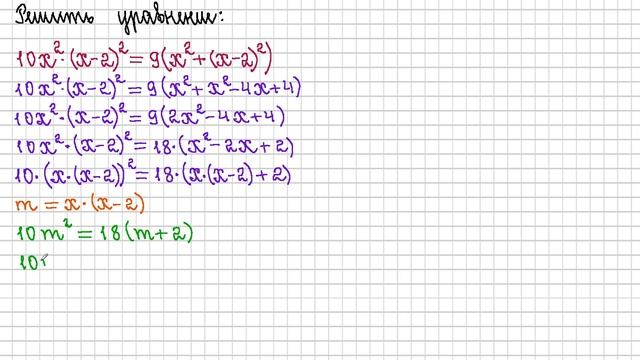 Решить уравнение:
10x²·(x-2)²=9(x²+(x-2)²)
10x²·(x-2)²=9(x²+x²-4x+4)
10x²·(x-2)²=9(2x²-4x+4)
10x²·(x-2)²=18·(x²-2x+2)
10·(x·(x-2))²=18·(x·(x-2)+2)
m=x·(x-2)
10m²=18(m+2)
10